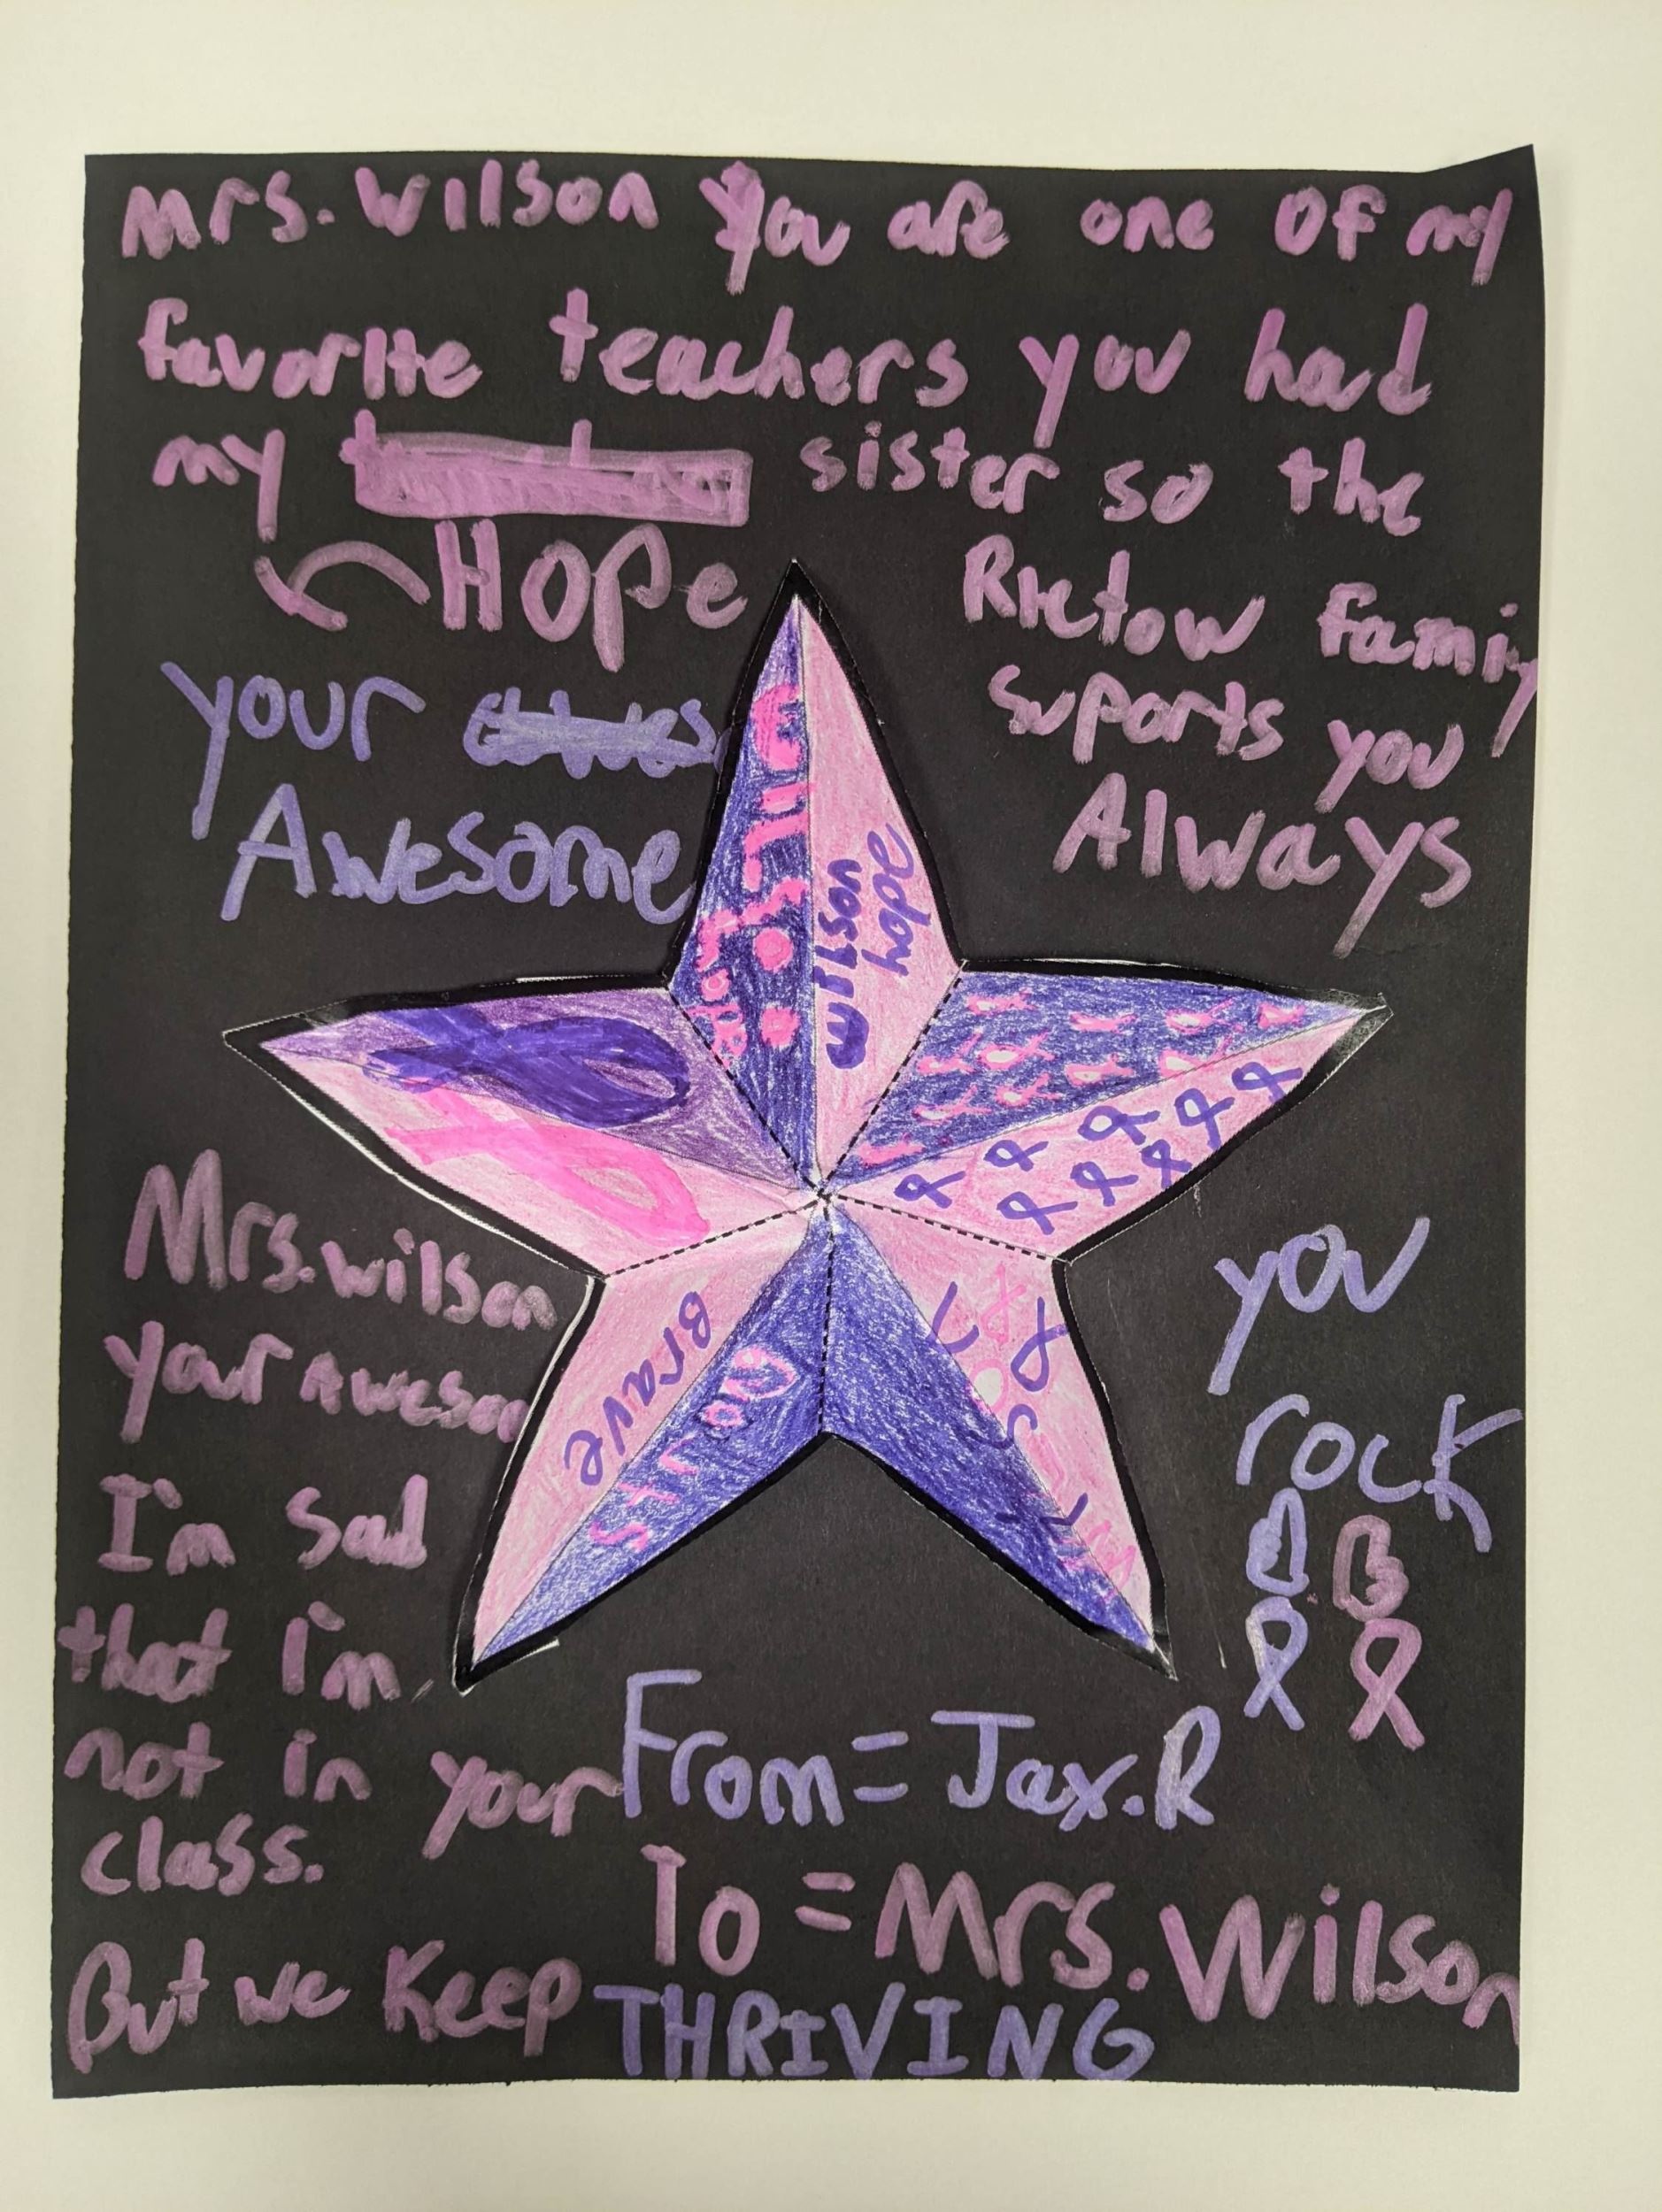 Mrs. Wilson you are one of my
favorite teachers you had
my sister so the
Hope
Rietow famiy
suports you
Always
your
Awesome
Wilson
hope
Brave
Mrs. wilson
your Aweson
I'm sad
that i'm
not in your
class.
But we Keep THRIVING
you
rock
From = Jax.R
To = Mrs. Wilson